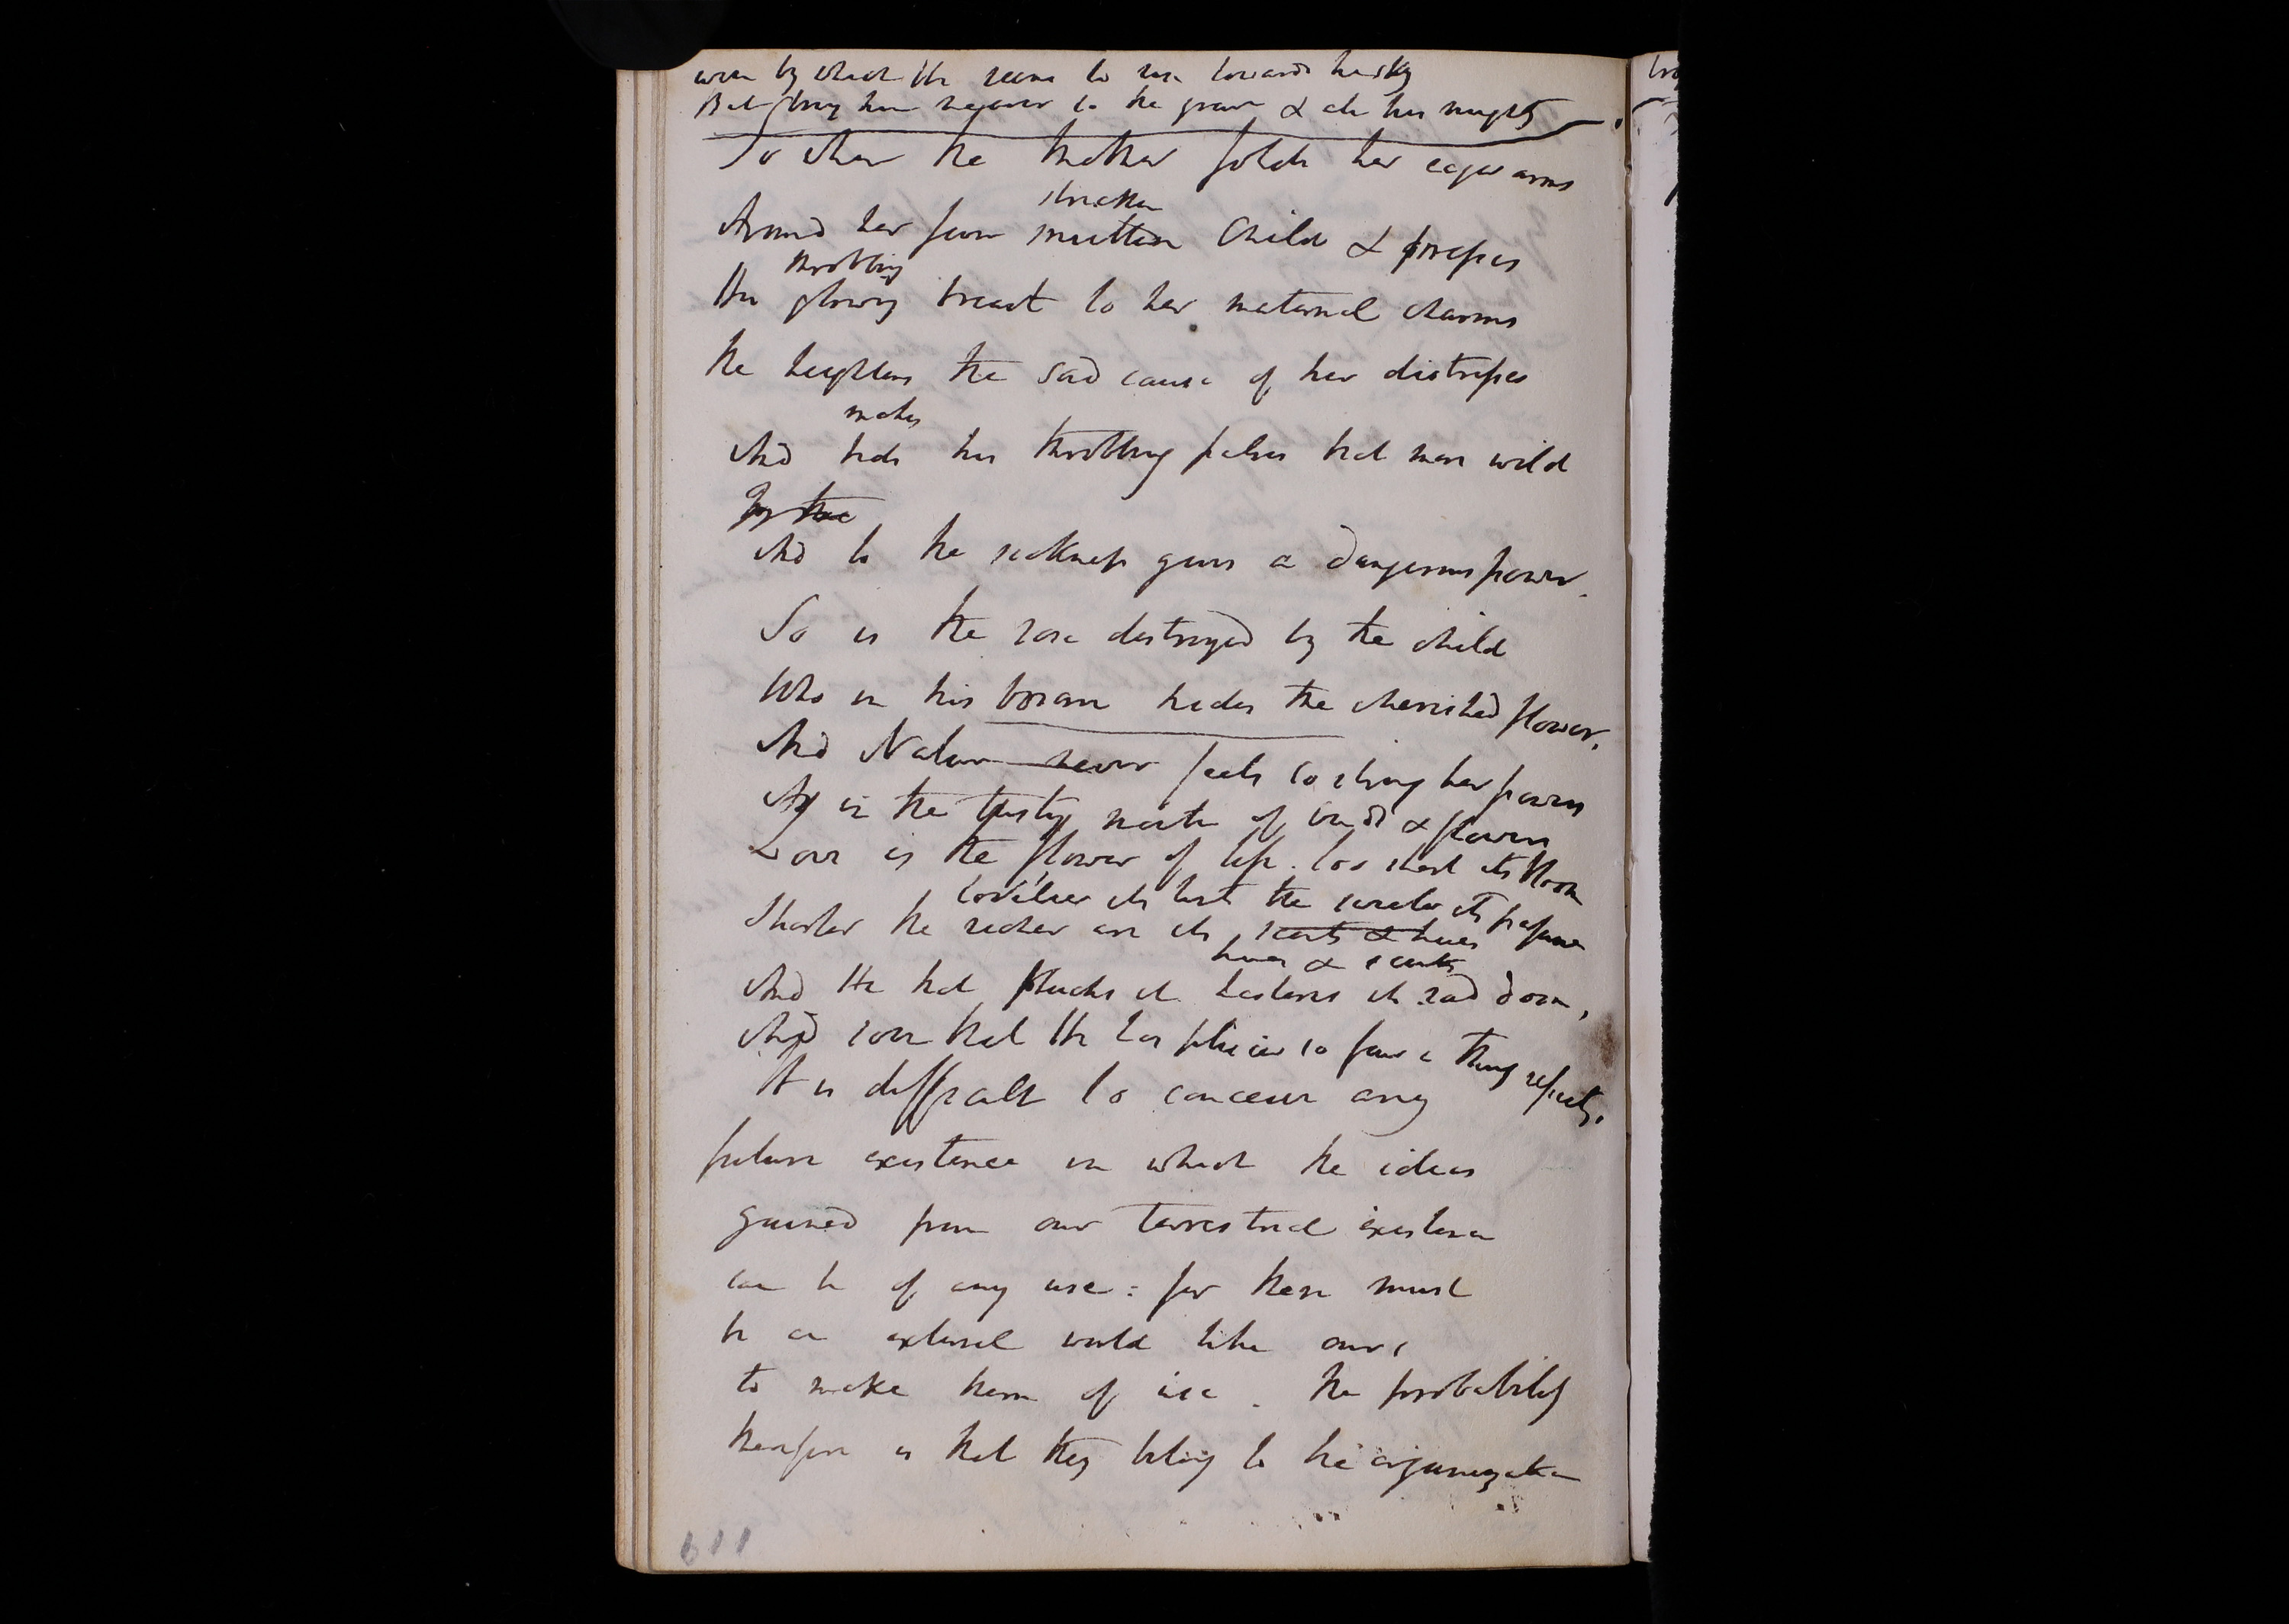 by which He seems to rise towards the sky
But bring him nearer to the grave & all his
So when the mother folds her eager arms
stricken
Around her fever smitten Child & presses
throbbing
His glowing breast to her maternal charms
She heightens the sad cause of her distresses
makes
And bids his throbbing pulses beat more wild
By the
And to the sickness gives a dangerous power.
So is the rose destroyed by the child
Who in his bosom hides the cherished flower.
And Nature never feels so strong her powers
As in the north of buds & flowers
Love is the flower of life. too short its bloom
Lovelier its tints the sweeter its perfume
Shorter the richer are its scents & hues
hues & scents
And He that plucks it hastens its sad doom,
And soon that He has so fair a thing
It is difficult to conceive any
future existence in which the ideas
gained from our terrestrial existence
can be of any use: for there must
be an external world like ours
to make them of use. The probability
therefore is that they belong to the
611